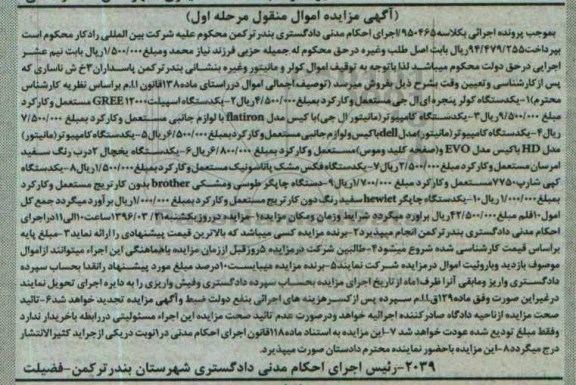 (آگهی مزایده اموال منقول مرحله اول)
بموجب پرونده اجرائی بکلاسه ۹۵۰۴۶۵/ اجرای احکام مدنی دادگستری بندر ترکمن محکوم علیه شرکت بین المللی رادکار محکوم است
بپرداخت ۹۴/۴۷۹/۲۵۵ ریال بابت اصل طلب وغیره درحق محکوم له جمیله حزبی فرزند نیاز محمد ومبلغ ۱/۵۰۰/۰۰۰ ریال بابت نیم عشر
اجرایی درحق دولت محکوم میباشد لذا باتوجه به توقیف اموال کولر و مانیتور وغیره بنشانی بندر ترکمن پاسداران ۳ خ ش ناساری که
پس از کارشناسی وتعیین وقت بشرح ذیل بفروش میرسد (توصیف اجمالی اموال درراستای ماده ۱۳۸ قانون ا.ا.م براساس نظریه کارشناس
محترم) ۱-یکدستگاه کولر پنجره ای ال جی مستعمل وکارکرد بمبلغ ۴/۵۰۰/۰۰۰ ریال ۲-یکدستگاه اسپیلت GREE ۱۲۰۰۰ مستعمل وکارکرد
مبلغ ۹/۵۰۰/۰۰۰ ریال ۳-یکدستگاه کامپیوتر (مانیتور ال جی) با کیس مدل flatiron با لوازم جانبی مستعمل وکارکرد بمبلغ ۷/۵۰۰/۰۰۰
ریال ۴-یکدستگاه کامپیوتر (مانیتور) مدل dell باکیس ولوازم جانبی مستعمل وکارکرد بمبلغ ۶/۵۰۰/۰۰۰ ریال ۵-یکدستگاه کامپیوتر (مانیتور)
مدل HD باکیس مدل EVO و (صفحه کلید وموس) مستعمل وکارکرد بمبلغ ۶/۸۰۰/۰۰۰ ریال ۶-یکدستگاه یخچال ۲ درب رنگ سفید
امرسان مستعمل وکارکرد مبلغ ۲/۵۰۰/۰۰۰ ریال ۷-یکدستگاه فکس مشکی پاناسونیک مستعمل وکارکرد بمبلغ ۱/۵۰۰/۰۰۰ ریال ۸-یکدستگاه
کپی شارپ ۷۷۵۰ مستعمل وکارکرد مبلغ ۱/۷۰۰/۰۰۰ ریال ۹-دستگاه چاپگر طوسی ومشکی brother بدون کارتریج مستعمل وکارکرد
بمبلغ ۱/۰۰۰/۰۰۰ ریال ۱۰-یکدستگاه چاپگر hewiet سفید رنگ دون کارتریج مستعمل وکارکرد بمبلغ ۱/۰۰۰/۰۰۰ ریال برآورد میگردد جمع کل
اموال ۱۰ قلم مبلغ ۴۲/۵۰۰/۰۰۰ ریال براورد میگردد شرایط وزمان ومکان مزایده ۱-مزایده درروز یکشنبه ۱۳۹۶/۰۳/۲۱ ساعت ۱۰ الی ۱۱ دراجرای
احکام مدنی دادگستری بندر ترکمن انجام میپذیرد ۲-برنده مزایده کسی میباشد که بالاترین قیمت پیشنهادی را ارائه نماید ۳-مبلغ پایه
براساس قیمت کارشناسی شده شروع میشود ۴-طالبین شرکت درمزایده ۵ روز قبل اززمان مزایده باهماهنگی این اجراء میتوانند ازاموال
موصوف بازدید وباروئیت اموال درمزایده شرکت نمایند ۵-برنده مزایده میبایست ۱۰ درصد مبلغ مورد پیشنهاد رانقدا بحساب سپرده
دادگستری واریز ومابقی آنرا ظرف ۱ ماه از تاریخ اجرای مزایده بحساب سپرده دادگستری وفیش واریزی را به دایره اجرای تحویل نمایند
درغیراین صورت وفق ماده ۱۲۹ ق.ا.ا.م سپرده پس از کسر هزینه های اجرائی بنفع دولت ضبط وآگهی مزایده تجدید خواهد شد ۶-تائید
صحت مزایده ازناحیه دادگاه صادرکننده اجرائیه خواهد بود درصورت عدم تائید صحت مزایده این اجراء مسئولیتی دررابطه باخریدار ندارد
وفقط مبلغ تودیع شده عودت خواهد شد ۷-این مزایده به استناد ماده ۱۱۸ قانون اجرای احکام مدنی در ۱ نوبت دریکی ازجراید کثیرالانتشار
درج میگردد ۸-این مزایده باحضور نماینده محترم دادستان صورت میپذیرد.
۲۰۳۹-رئیس اجرای احکام مدنی دادگستری شهرستان بندر ترکمن-فضیلت